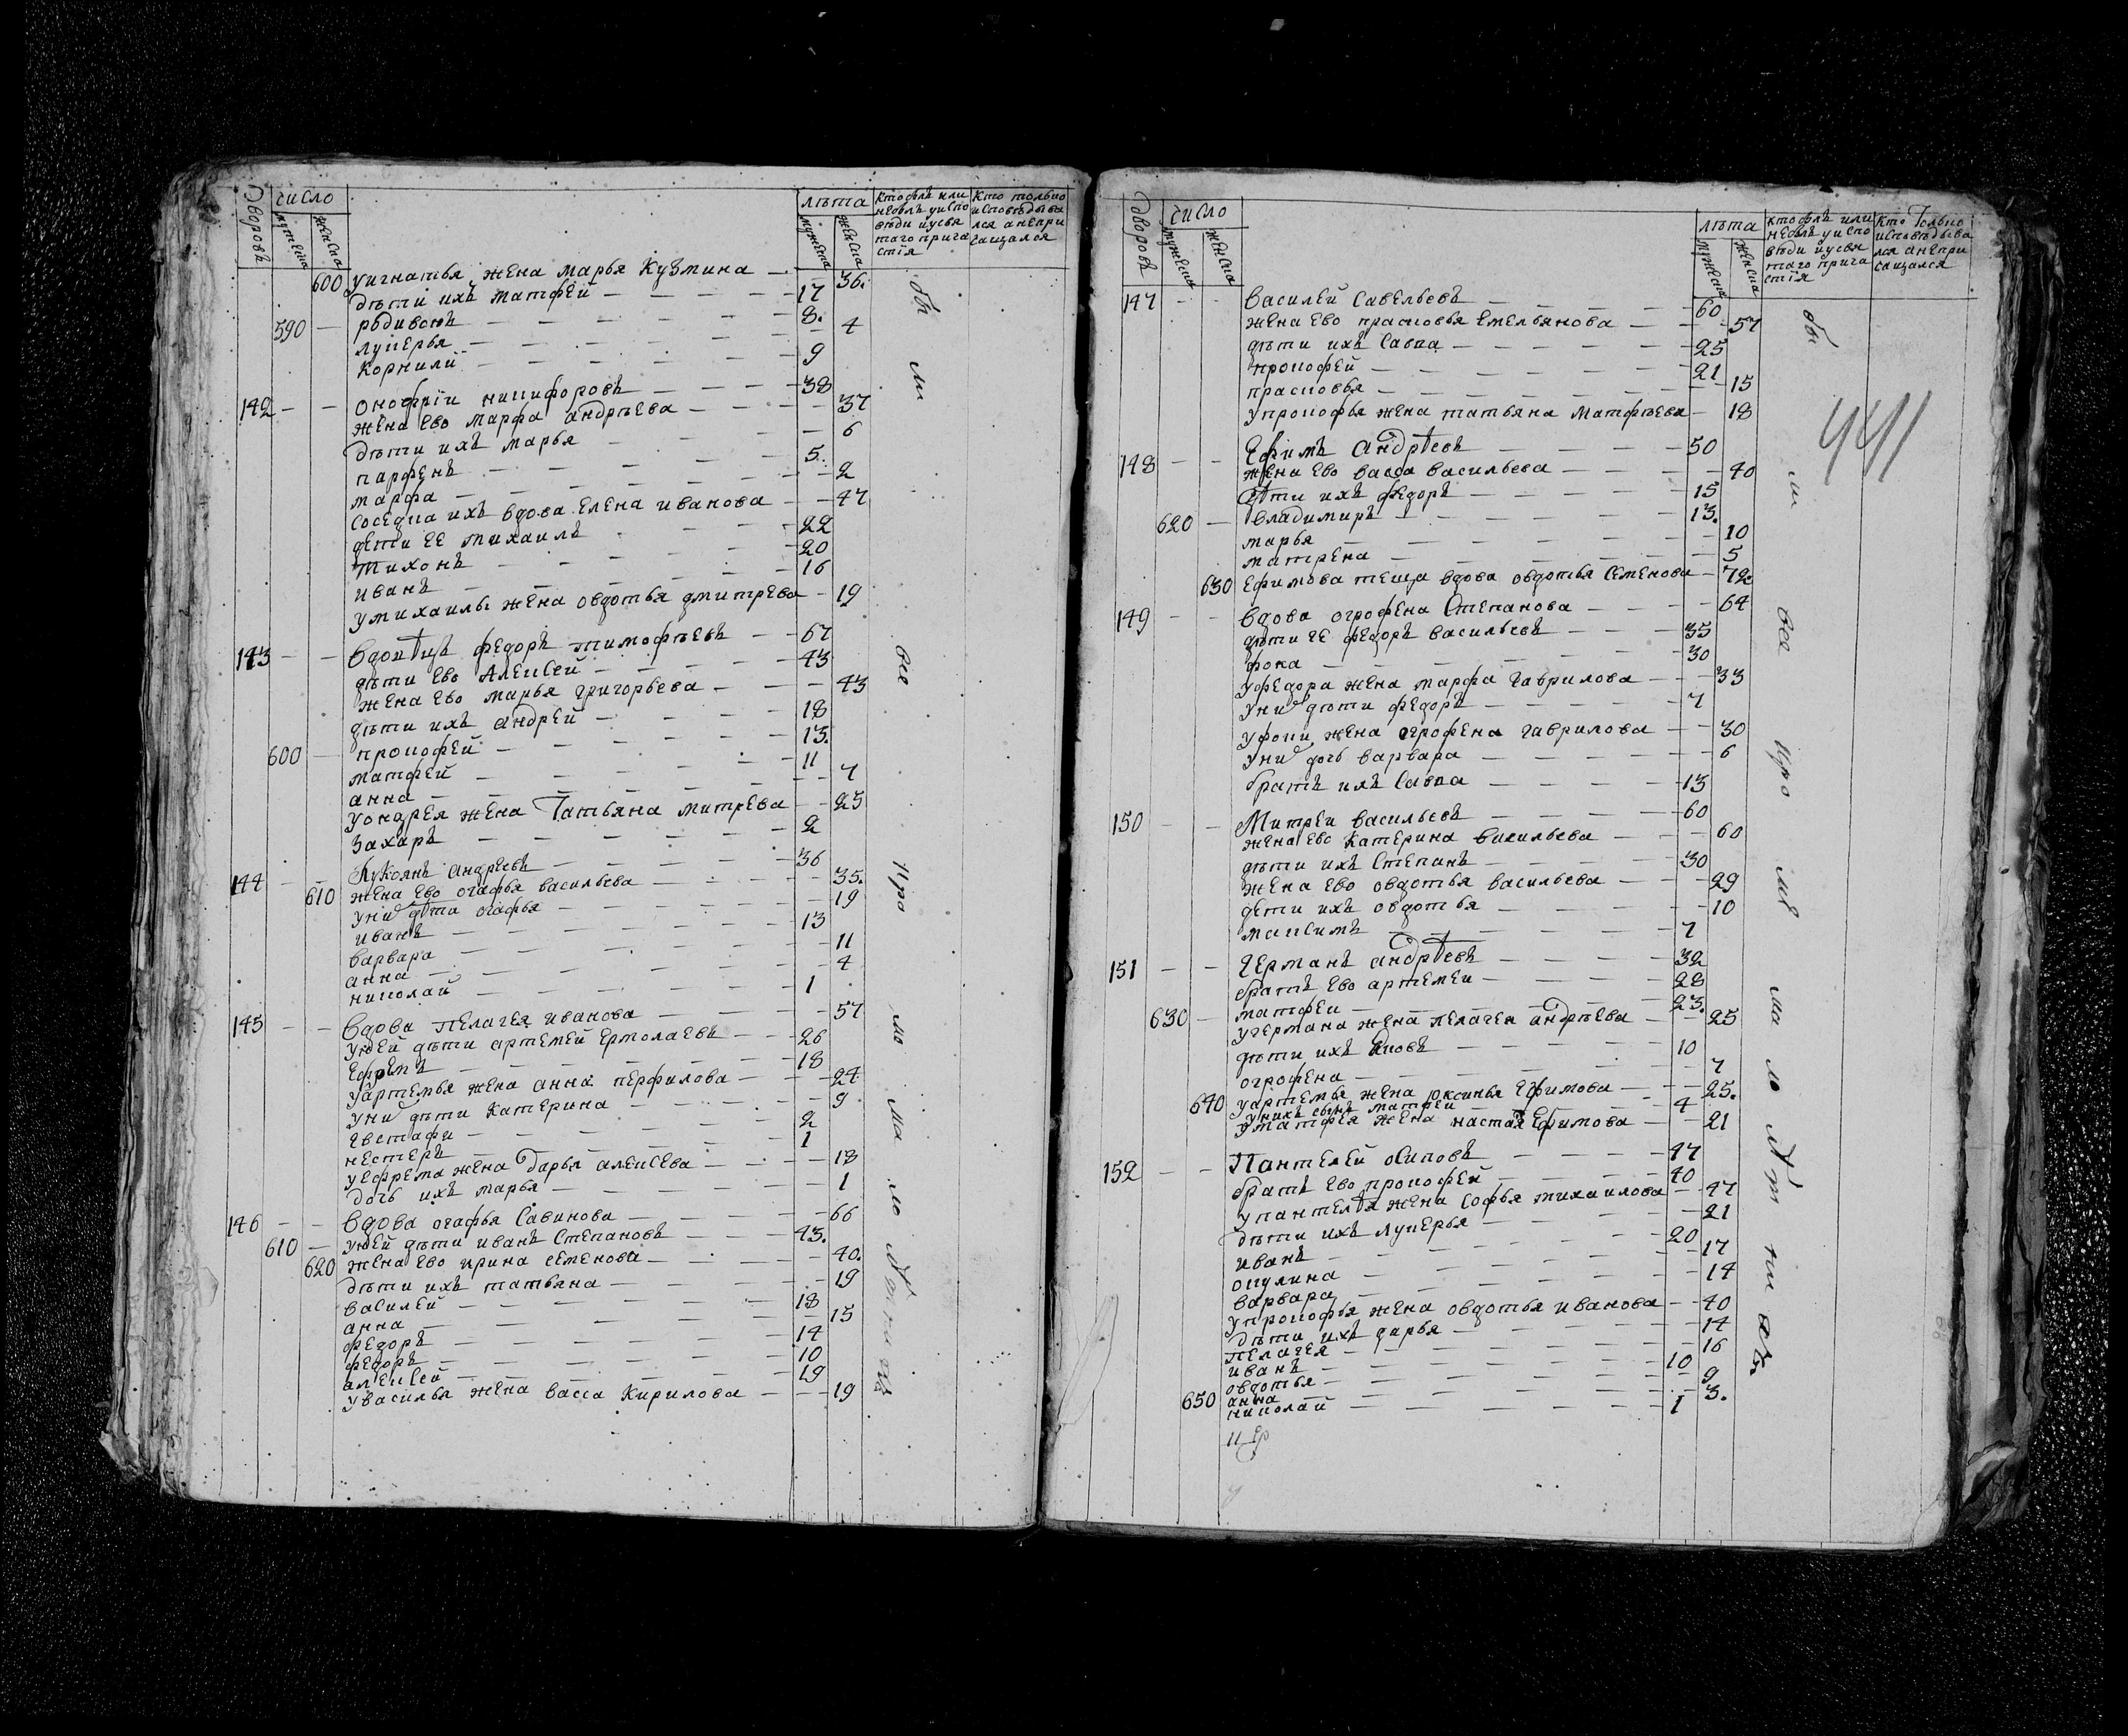 дворовъ число лѣта кто былъ или кто только
мужеска женска мужеска женска небылъ уиспо исповѣдыва
вѣди иусвя лся анепри
таго прича сащался
стія
600 уигнатья жена марья Кузмина 36.
дѣти ихъ матфей 17
590 родивонъ 8.
лукерья 4
Корнилй 9
142 онофрiи никифоровъ 38
жена ево марфа андрѣева 37
дѣти ихъ марья 6
парфенъ 5.
марфа 2
соседка ихъ вдова елена иванова 47
дети ее михаилъ 22
тихонъ 20
иванъ 16
умихаилы жена овдотья дмитрева 19
143 вдовѣцъ федоръ тимофѣевъ 67
дѣти ево алексей 43
жена ево марья григорьева 43
дѣти ихъ андрей 18
600 прокофей 13.
матфей 11
анна 7
уондрея жена татьяна митрева 25
захаръ 2
144 Лукоянъ андреевъ 36
610 жена ево огафья васильева 35.
уних дѣти огафья 19
иванъ 13
варвара 11
анна 4
николай 1
145 вдова пелагея иванова 57
уней дѣти артемей ермолаевъ 26
ефремъ 18
уартемья жена анна перфилова 24
уних дѣти Катерина 9
евстафи 2
нестеръ 1
уефрема жена дарья алексева 18
дочь ихъ марья 1
146 вдова огафья савинова 66
610 уней дѣти иванъ степановъ 43.
620 жена ево ирина семенова 40.
дѣти ихъ татьяна 19
василей 18
анна 15
федоръ 14
федоръ 10
алексей 19
увасилья жена васса Кирилова 19
бы ли все про мо ма мо
дворовъ число лѣта кто былъ или кто только
мужеска женска мужеска женска небылъ уиспо исповѣдыва
вѣди иусвя лся анепри
таго прича сащался
стія
147 василей савельевъ 60
жена ево прасковья емельянова 57
дѣти ихъ савка 25
прокофей 21
прасковья 15
упрокофья жена татьяна матфѣева 18
441
148 ефимъ андрѣевъ 50
жена ево васса васильева 40
дѣти ихъ федоръ 15
620 владимиръ 13.
марья 10
матрена 5
630 ефимова теща вдова овдотья семенова 72
149 вдова огрофена степанова 64
дѣти ее федоръ васильевъ 35
фока 30
уфедора жена марфа гаврилова 33
уних дѣти федоръ 7
уфоки жена огрофена гаврилова 30
уних дочь варвара 6
братъ ихъ савка 13
150 Митреи васильевъ 60
жена ево Катерина васильева 60
дѣти ихъ степанъ 30
жена ево овдотья васильева 29
дети ихъ овдотья 10
максимъ 7
151 германъ андрѣевъ 32
братъ ево артемеи 28
630 матфеи 23.
угермана жена пелагея андрѣева 25
дѣти ихъ яковъ 10
огрофена 7
640 уартемья жена оксинья ефимова 25.
унихъ сынъ матфей 4
уматфея жена настая ефимова 21
152 Пантелей осиповъ 47
братъ ево прокофей 40
упантелѣя жена софья михаилова 47
дѣти ихъ лукерья 21
иванъ 20
окулина 17
варвара 14
упрокофья жена овдотья иванова 40
дѣти ихъ дарья 14
пелагея 16
иванъ 10
овдотья 9
650 анна 3.
николай 1
бы ли все про ма ло